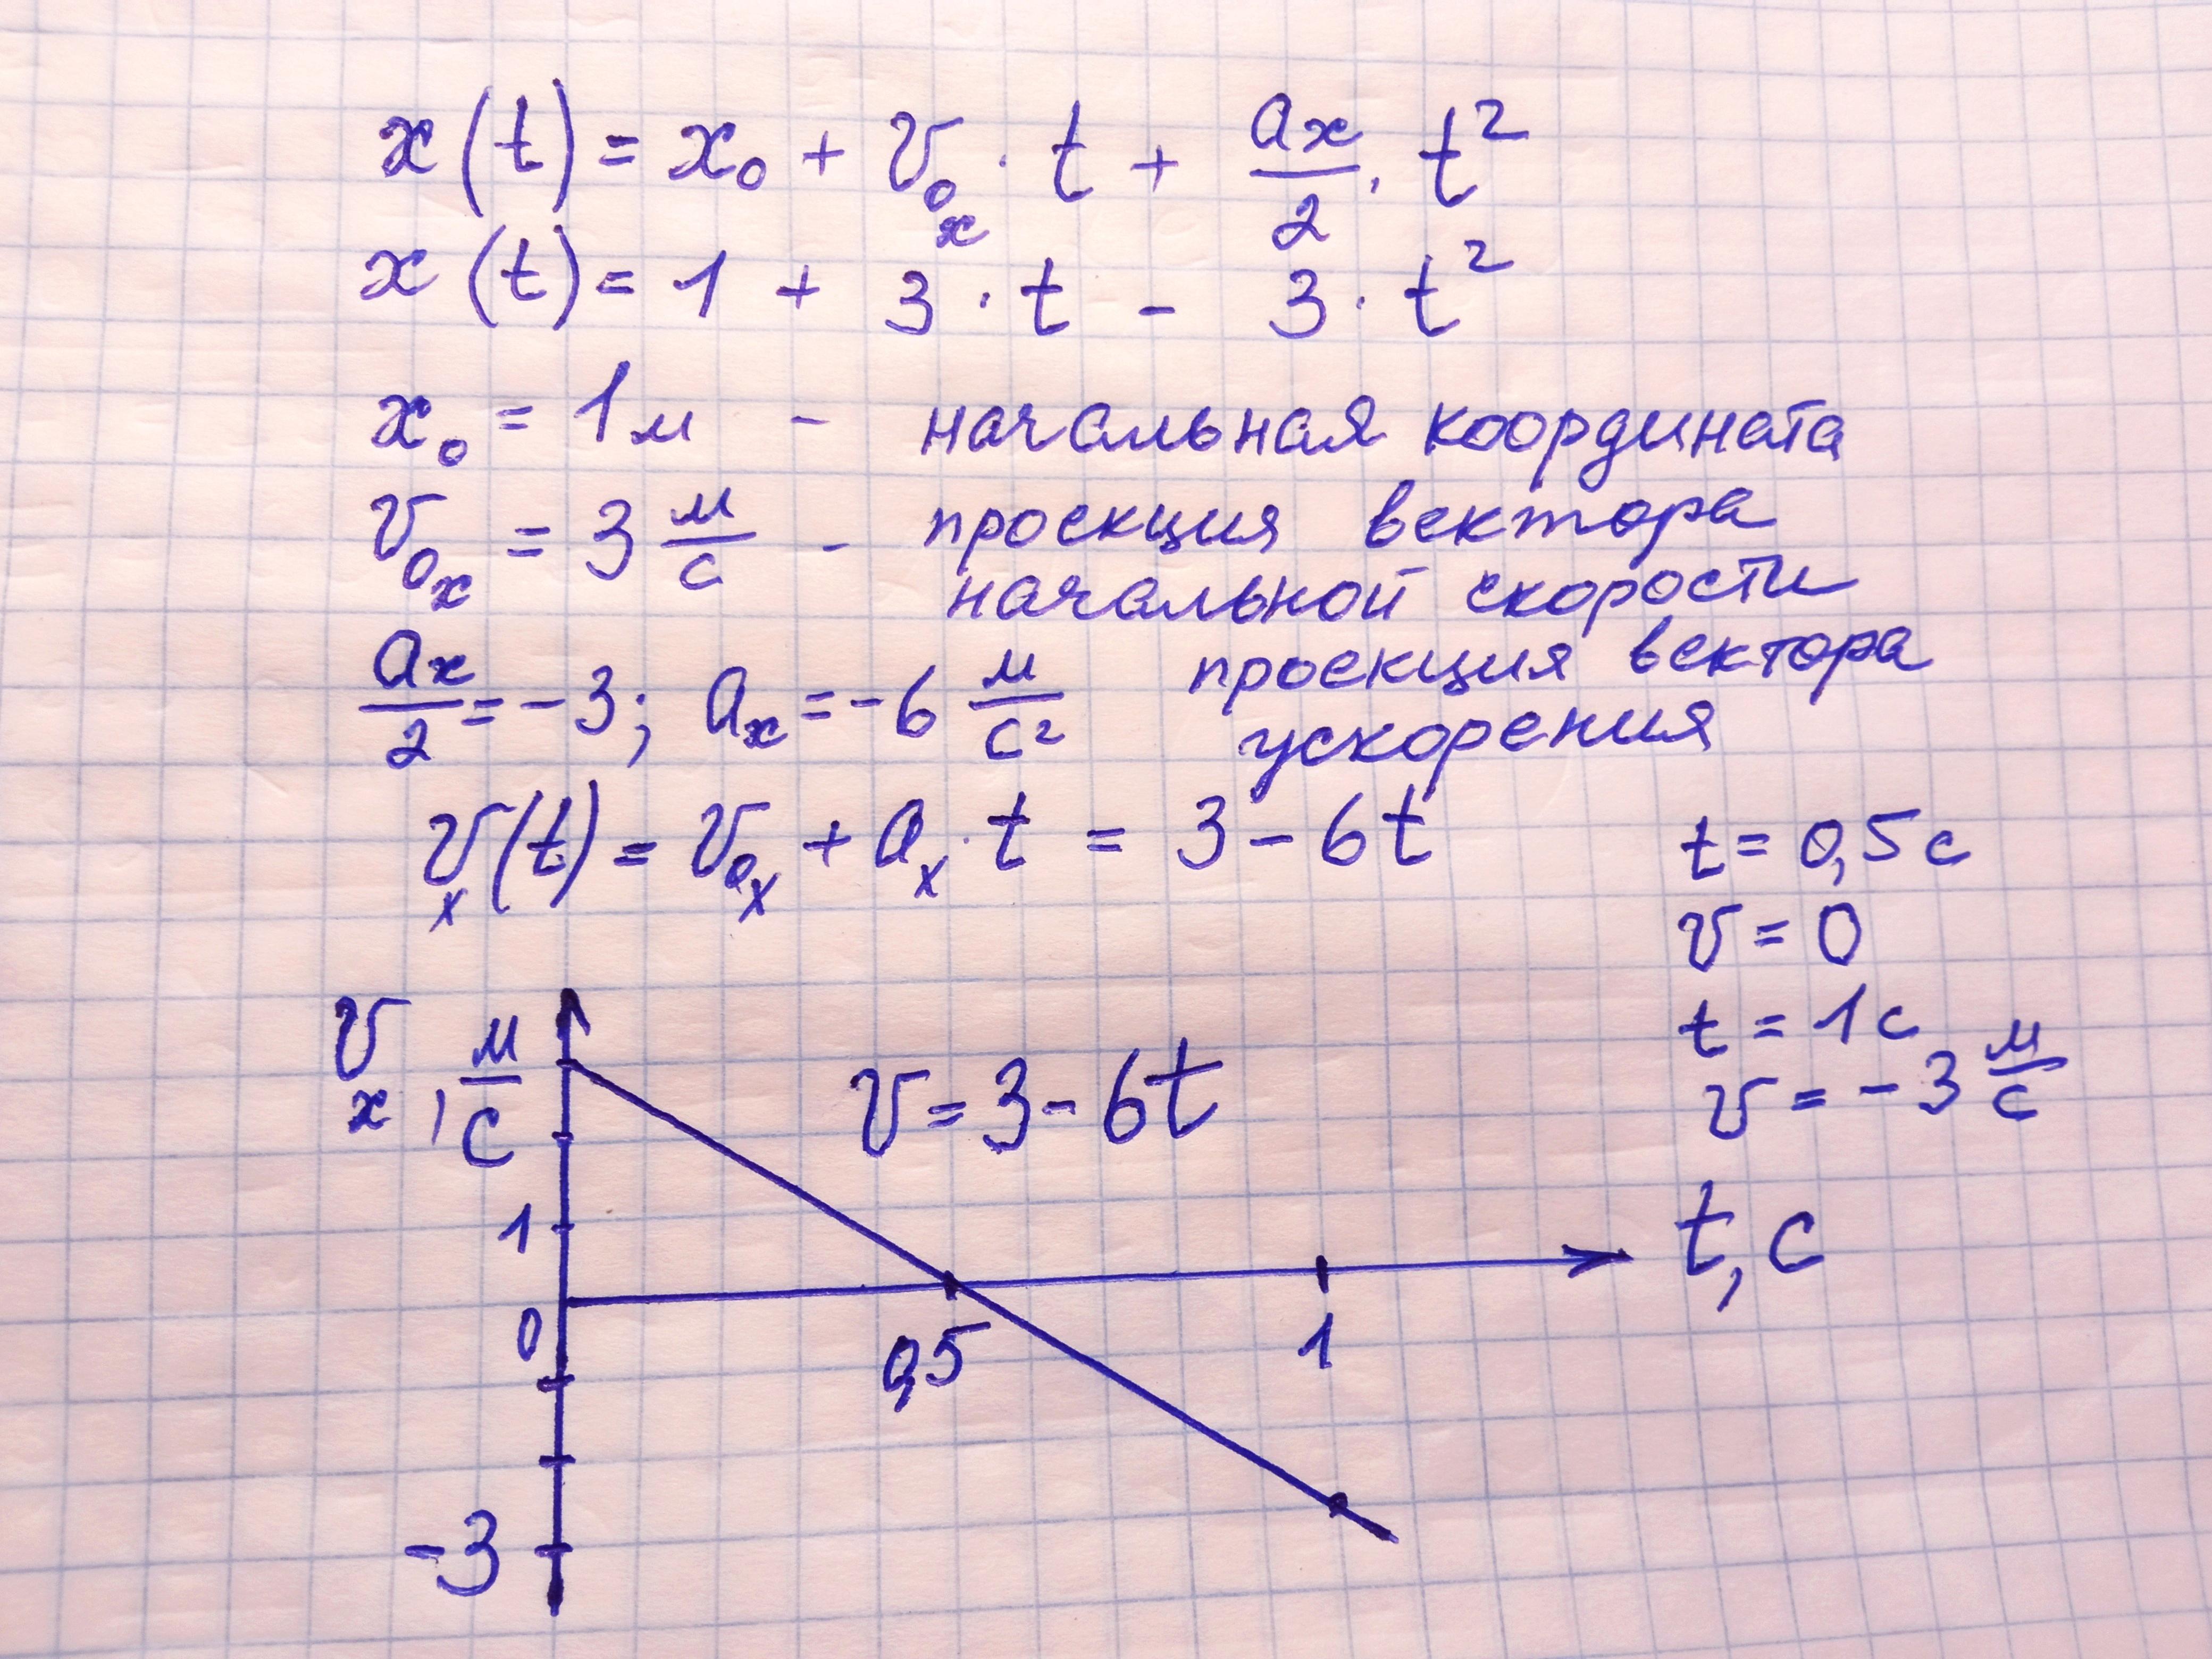 x(t) = x₀ + v₀ₓ · t + aₓ/2 · t²
x(t) = 1 + 3 · t - 3 · t²
x₀ = 1 м - начальная координата
v₀ₓ = 3 м/с - проекция вектора
начальной скорости
aₓ/2 = -3; aₓ = -6 м/с² проекция вектора
ускорения
vₓ(t) = v₀ₓ + aₓ · t = 3 - 6t
t = 0,5 с
v = 0
t = 1 с
v = -3 м/с
vₓ, м/с
v = 3 - 6t
1
t, с
0
0,5
1
-3